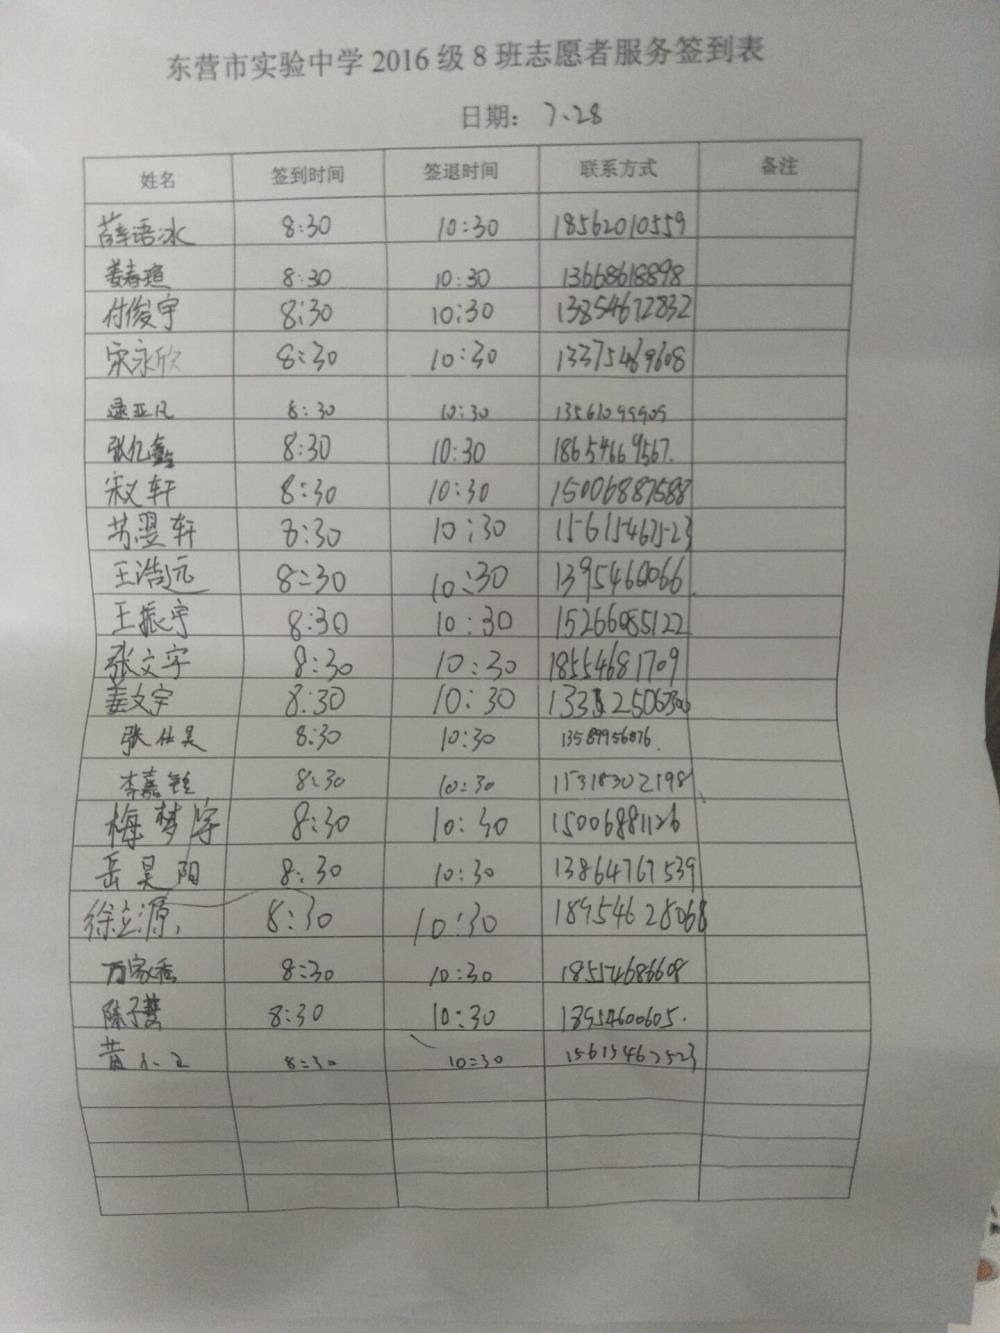 东营市实验中学 2016 级 8 班志愿者服务签到表
日期： 7、28
姓名 签到时间 签退时间 联系方式 备注
薛语冰 8:30 10:30 18562010559
姜春瑄 8:30 10:30 13668618898
付俊宇 8:30 10:30 13854672832
宋永欣 8:30 10:30 13375469608
逯亚凡 8:30 10:30 13561099909
张亿鑫 8:30 10:30 18654669567.
宋文轩 8:30 10:30 15006887588
芮翌轩 8:30 10:30 15615467523
王浩远 8:30 10:30 1395460066
王振宇 8:30 10:30 15266085122
张文宇 8:30 10:30 18554681709
姜文宇 8:30 10:30
张仕昊 8:30 10:30 13589956076.
李嘉 8:30 10:30
梅梦宇 8:30 10:30 15006881126
岳昊阳 8:30 10:30 13864767539
徐立源 8:30 10:30 18954628068
万家 8:30 10:30 18554686608
陈子梦 8:30 10:30 18954600605.
8:30 10:30 15615462523